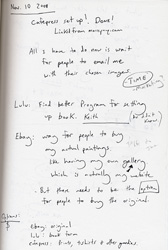 Nov. 10 2008
Cafepress set up! Done!
Linked from
All I have to do now is wait
for people to email me
with their chosen images.
TIME
Lulu: Find better Program for setting
up book. Keith
Ebay: way for people to buy
my actual paintings.
like having my own gallery
which is actually my website.
- But there needs to be the option
for people to buy the original.
Options:
Ebay: original
lulu: book form
cafepress: Prints, tshirts & other goodies.